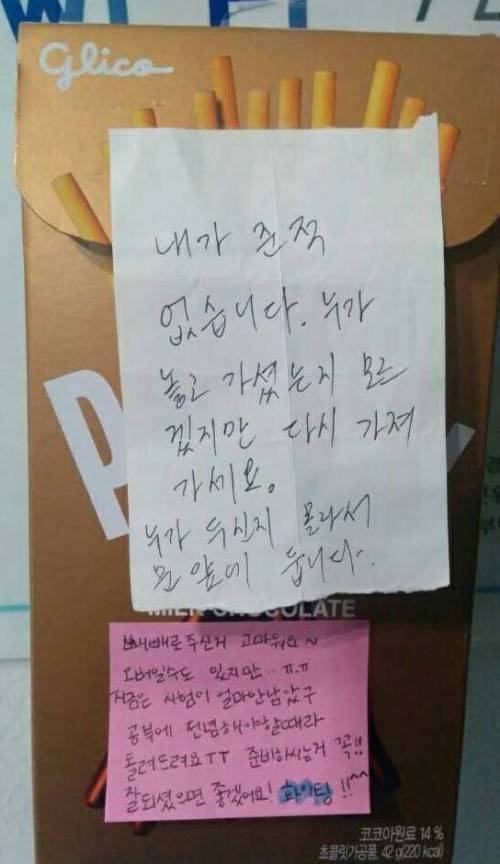 Glico
내가 준적
없습니다. 누가
놓고 가셨는지 모르
겠지만 다시 가져
가세요.
누가 두신지 몰라서
문 앞에 둡니다.
MILK CHOCOLATE
빼빼로주신거 고마워요~
오버일수도 있지만..ㅠ.ㅠ
지금은 시험이 얼마안남았구
공부에 전념해야할때라
돌려드려요TT 준비하시는거 꼭!!
잘되셨으면 좋겠어요! 화이팅!!^^
코코아원료 14 %
초콜릿가공품, 42 g(220 kcal)